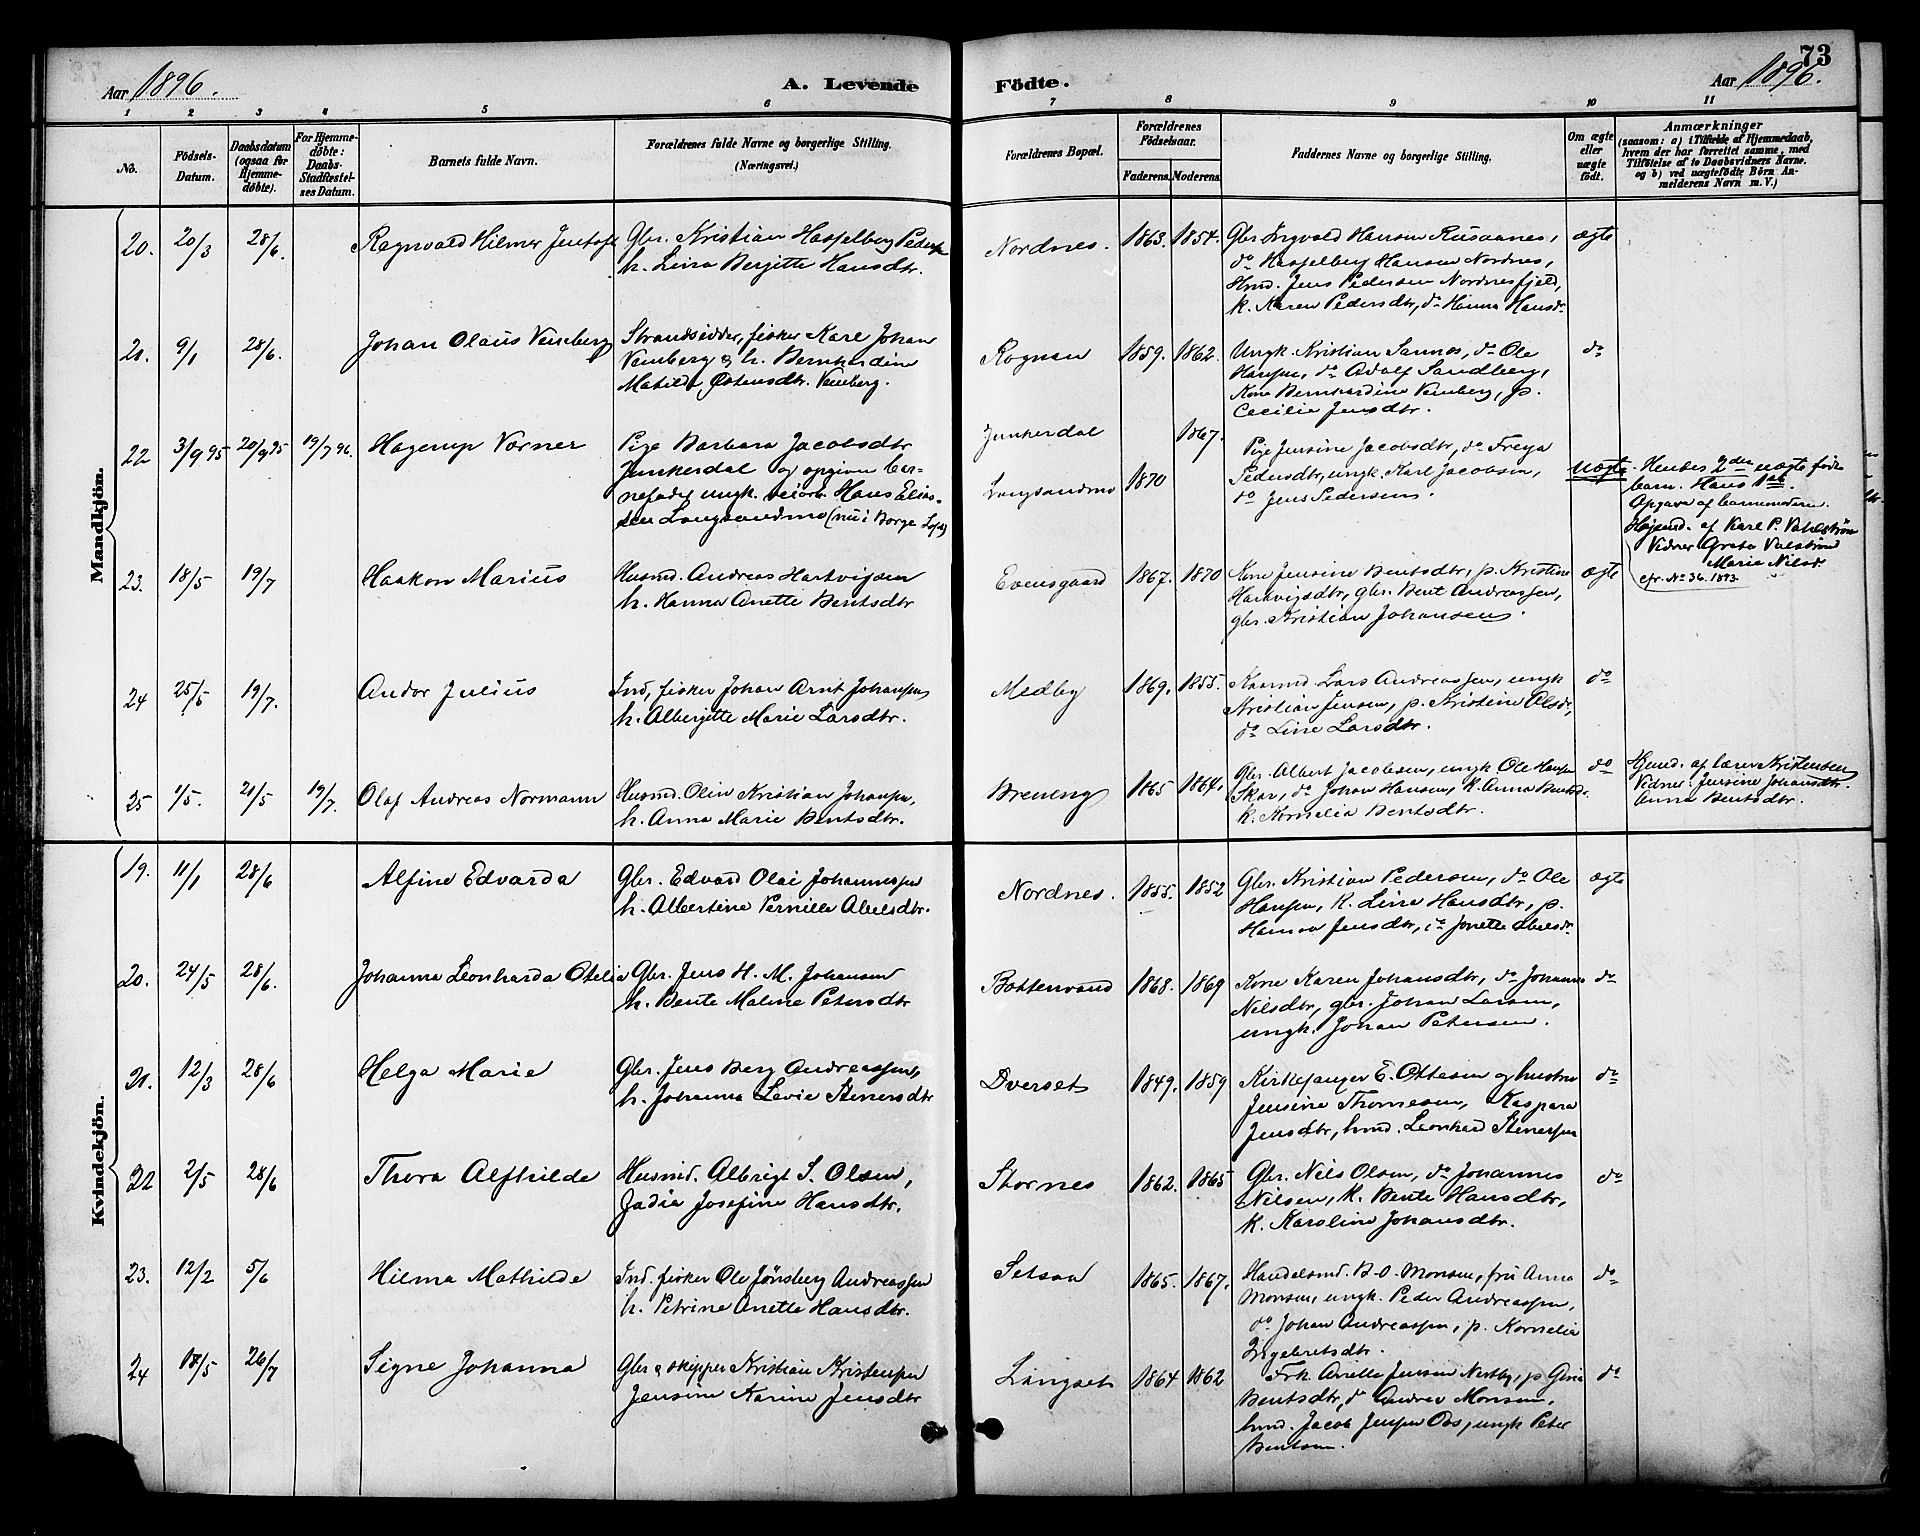 73
Aar 1896.
A. Levende
Födte.
Aar 1896.
1 2 3 4 5 6 7 8 9 10 11
No.
Födsels-
Datum.
Daabsdatum
(ogsaa for
Hjemme-
döbte).
For Hjemme-
döbte:
Daabs-
Stadfæstel-
ses Datum.
Barnets fulde Navn.
Forældrenes fulde Navne og borgerlige Stilling.
(Næringsvei.)
Forældrenes Bopæl.
Forældrenes
Födselsaar.
Faderens. Moderens.
Faddernes Navne og borgerlige Stilling.
Om ægte
eller
uægte
födt.
Anmærkninger
(saasom: a) i Tilfælde af Hjemmedaab,
hvem der har forrettet samme, med
Tilföielse af to Daabsvidners Navne.
og b) ved uægtefödte Börn An-
melderens Navn m. V.)
Mandkjön.
20. 20/3 28/6. Ragnvald Hilmer Jentoft
Gbr. Kristian Hasselberg Peders
h. Lina Bergitte Hansdtr.
Nordnes. 1863. 1854.
Gbr Ingvald Hansen Rusaanes,
do Hasselberg Hansen Nordnes,
Hmd. Jens Pedersen Nordnesfjeld,
k. Karen Pedersdtr, do Hanna Hansdr.
ægte
21. 9/1 28/6. Johan Olaus Venberg
Strandsidder, fisker Karl Johan
Venberg & h. Bernhardine
Matilde Østensdtr. Venberg.
Rognan 1859. 1862.
Ungk. Kristian Sannes, do Ole
Hansen, do Adolf Sandberg,
Kone Bernhardine Venberg, p.
Cecilie Jensdtr.
do
22 3/9 95 20/9 95 19/7 96. Hagerup Verner
Pige Barbara Jacobsdtr
Junkerdal og opgiven bar-
nefader ungk. Hans Elias-
sen Langsandmo (nu i Borge Lof.)
Junkerdal 1867.
Langsandmo 1870
Pige Jensine Jacobsdtr, do Freya
Pedersdtr, ungk. Karl Jacobsen,
do Jens Pedersen.
uægte
Hendes 2den uægte fødte
barn. Hans 1ste.
Opgave af barnemoderen
Hjemd. af Karl P. Valstrøm
Vidner Grete Valstrøm
Marie Nilsd.
cfr. No 36. 1893
23. 18/5 19/7 Haakon Marius
Husmd. Andreas Hartvigsen
h. Hanna Anette Bentsdtr
Evensgaard 1867. 1870
Kone Jensine Bentsdtr, p. Kristine
Hartvigsdtr, gbr. Bent Andreassen,
gbr. Kristian Johansen.
ægte
24 25/5 19/7. Andor Julius
Ind, fisker Johan Arnt Johansen,
h. Albergitte Marie Larsdtr.
Medby 1869. 1855.
Kaarmd Lars Andreassen, ungk
Kristian Jensen, p. Kristine Olsdr,
do Line Larsdtr.
do
25 1/5. 21/5 19/7. Olaf Andreas Normann
Husmd. Olin Kristian Johansen,
h. Anna Marie Bentsdtr.
Breneng 1865 1864.
Gbr. Albert Jacobsen, ungk Ole Hansen
Skar, do Johan Hansen, K. Anna Bentsdr.
k. Kornelia Bentsdtr.
do
Hjemd. af lærer Kristensen
Vidner: Jensine Johansdtr.
Anna Bentsdtr.
Kvindekjön.
19. 11/1 28/6 Alfine Edvarda
Gbr. Edvard Olai Johannessen
h. Albertine Pernille Abelsdtr.
Nordnes. 1855. 1852
Gbr. Kristian Pedersen, do Ole
Hansen, K. Line Hansdtr, p.
Hanna Jensdtr, do Jonette Abelsdr.
ægte
20. 24/5 28/6. Johanna Leonharda Otelia
Gbr. Jens H. M. Johansen
h. Bente Maline Petersdtr
Bottenvand 1868. 1869
Kone Karen Johansdtr, do Johanna
Nilsdtr, gbr. Johan Larsen,
ungk. Johan Petersen.
do
21. 12/3 28/6 Helga Marie
Gbr. Jens Berg Andreassen,
h. Johanna Levie Stenersdtr
Dverset 1849. 1859
Kirkesanger E. Ottesen og hustru
Jensine Thomesen, Kaspara
Jensdtr, hmd. Leonhard Stenersen
do
22 2/5 28/6 Thora Alfhilde
Husmd. Albrigt S. Olsen,
Jadia Josefine Hansdtr.
Stornes 1862. 1865
Gbr. Nils Olsen, do Johannes
Nilsen, K. Bente Hansdtr,
K. Karoline Johansdtr.
do
23. 12/2 5/6 Hilma Mathilde
Ind. fisker Ole Jønsberg Andreassen
h. Petrine Anette Hansdtr.
Setsaa 1865. 1867.
Handelsmd. B. O. Monsen, fru Anna
Monsen, ungk. Peder Andreassen,
do Johan Andreassen, p. Kornelia
Ingebretsdtr.
do
24 18/5 26/7 Signe Johanna
Gbr & skipper Kristian Kristensen
Jensine Karine Jensdtr
Langset 1864 1862
Frk. Anette Jensen Nestby, p Gina
Bentsdtr, do Andrea Monsen,
hmd. Jacob Jensen Os, ungk Peter
Bentsen.
do